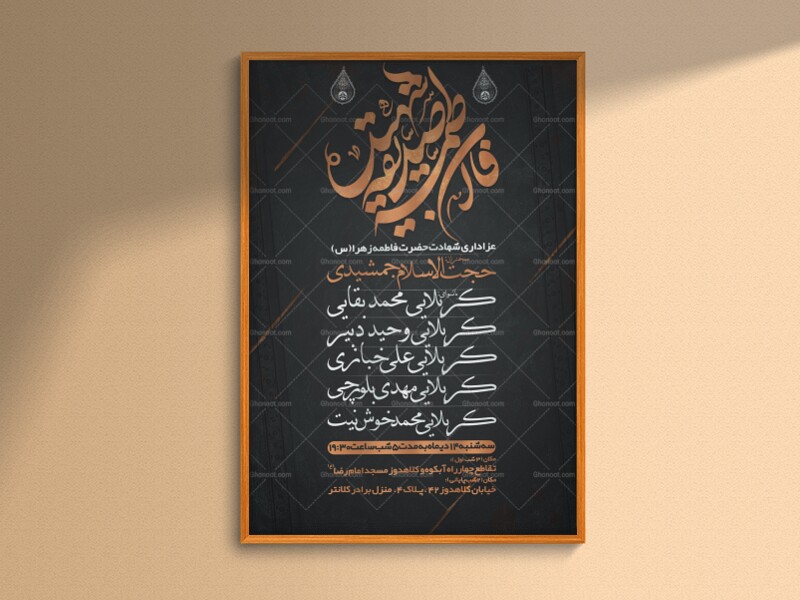 فاطمه صدیقه شهیده
عزاداری شهادت حضرت فاطمه زهرا (س)
سخنران
حجت الاسلام جمشیدی
بانوای
کربلایی محمد بقایی
کربلایی وحید دبیر
کربلایی علی خبازی
کربلایی مهدی بلوچی
کربلایی محمد خوش نیت
سه شنبه ۱۴ دیماه به مدت ۵ شب ساعت ۱۹:۳۰
مکان (۳ شب اول):
تقاطع چهارراه آبکوه و کلاهدوز مسجد امام رضا
مکان (۲ شب پایانی):
خیابان کلاهدوز ۴۲ ، پلاک ۴ ، منزل برادر کلانتر
Ghonoot.com